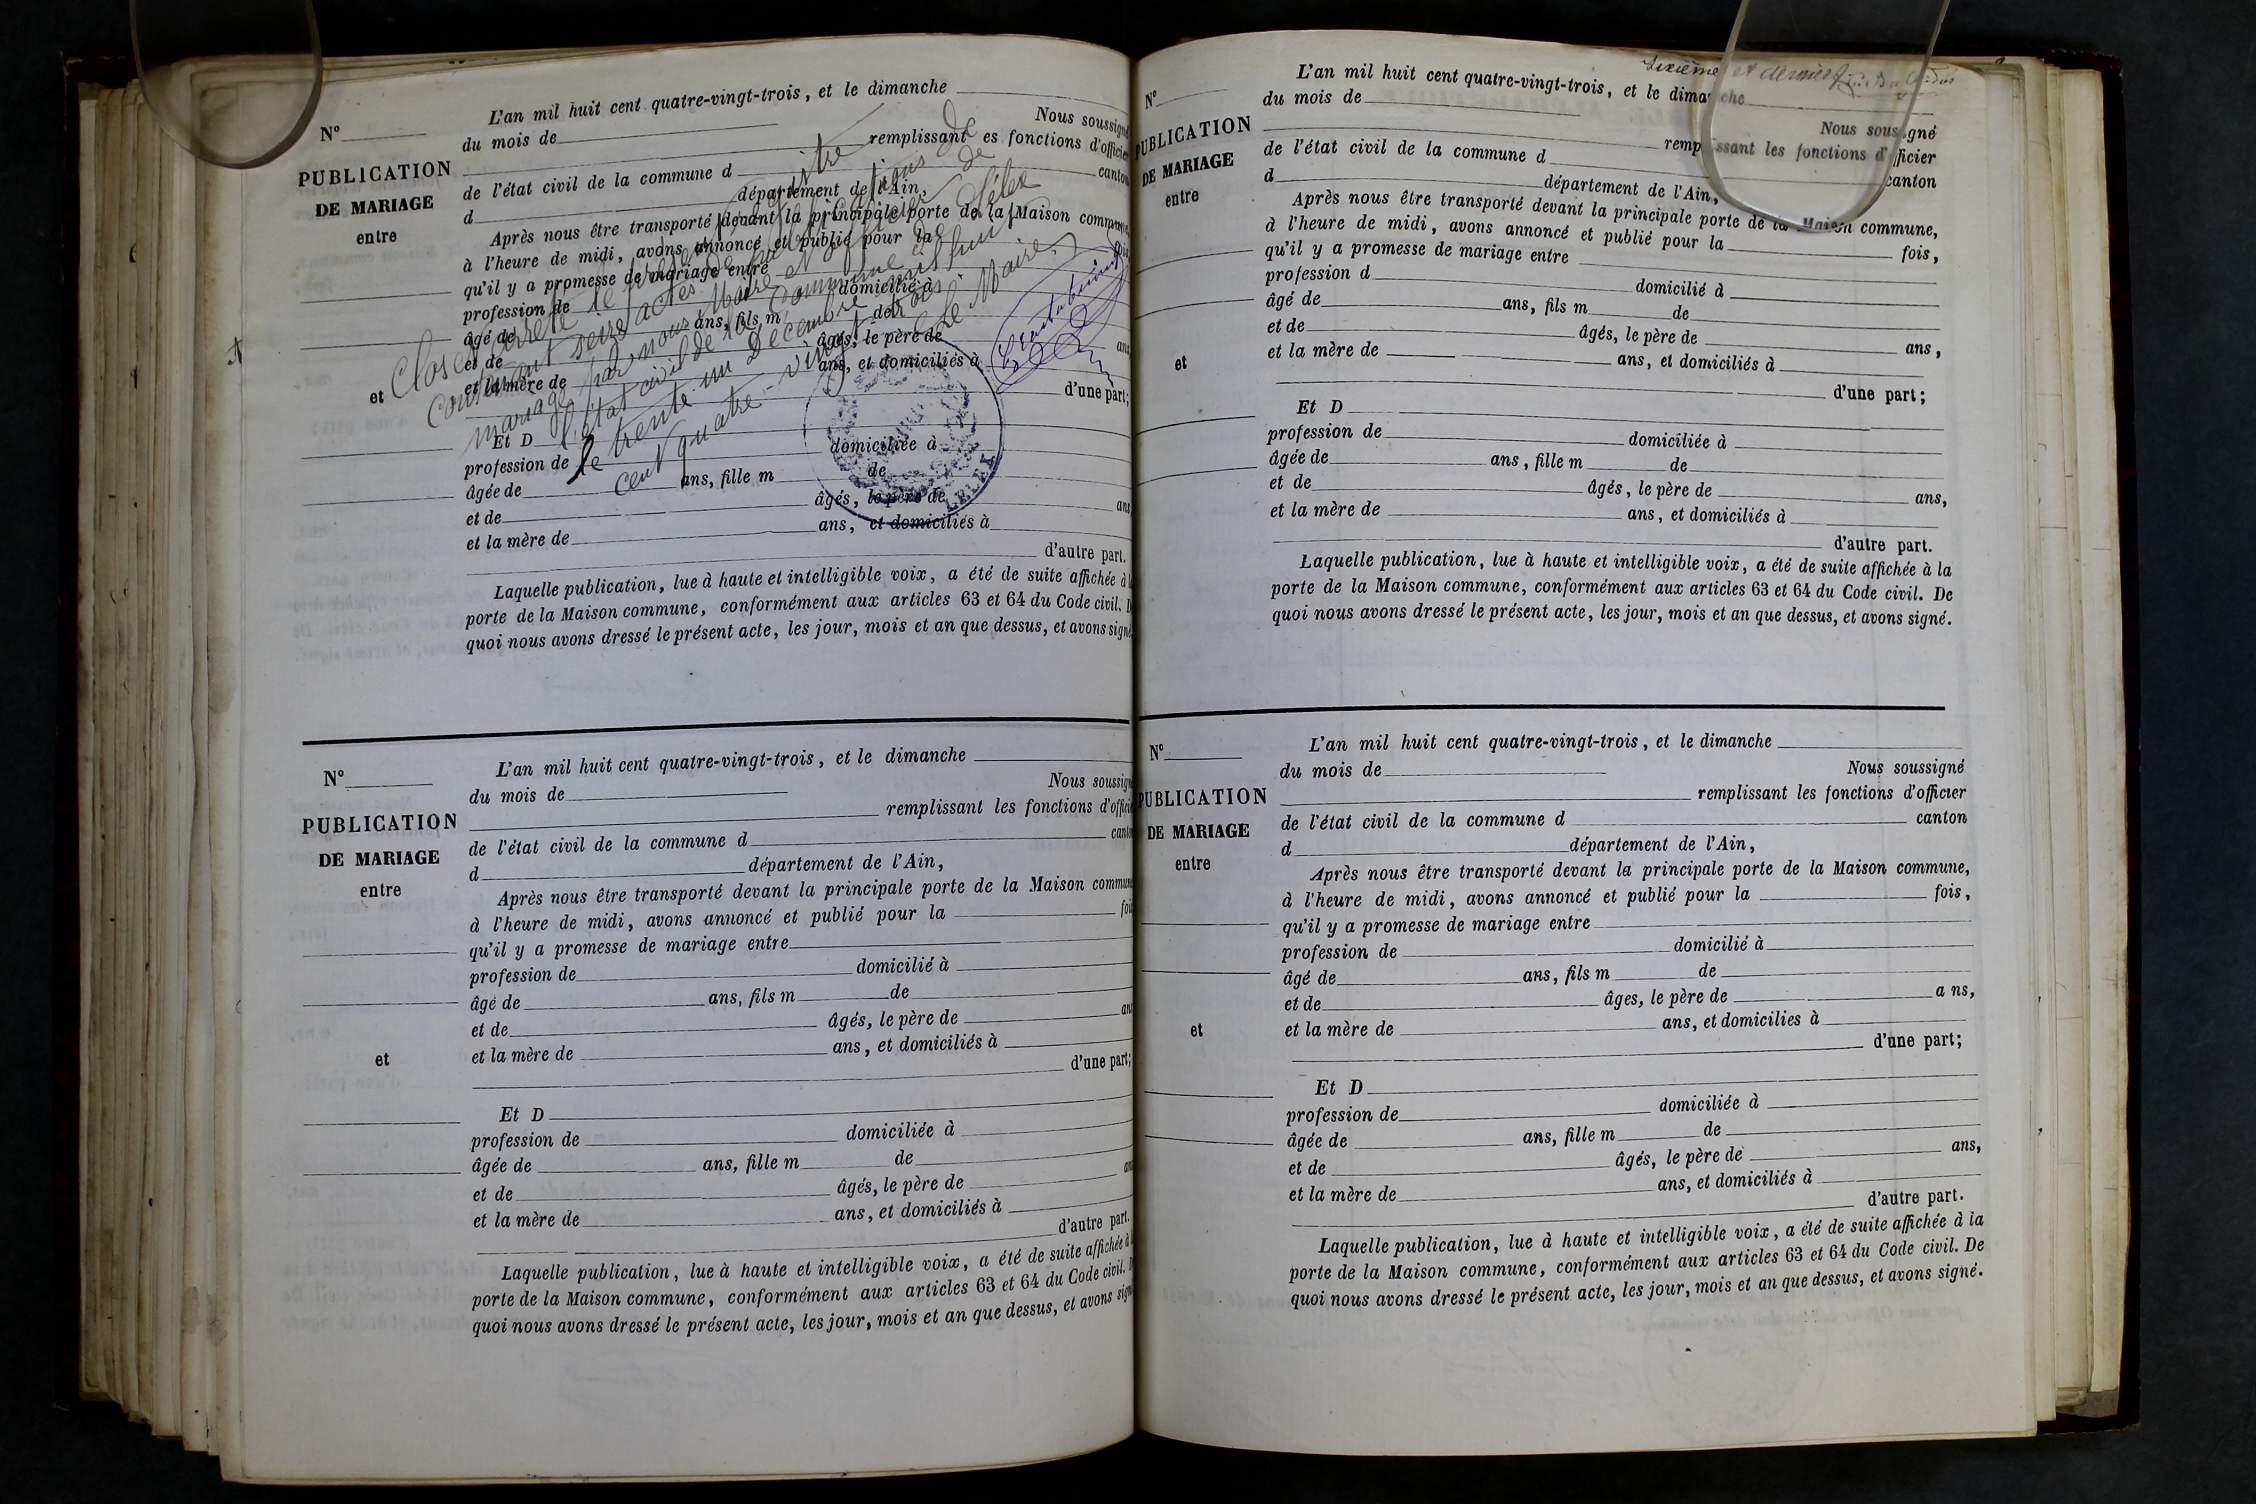 L'an mil huit cent quatre-vingt-trois, et le dimanche
du mois de
Nous soussigné
remplissant es fonctions d'officier
de l'état civil de la commune d
canton
d
département de l'Ain,
Après nous être transporté devant la principale porte de la Maison commune,
à l'heure de midi, avons annoncé et publié pour la
fois
qu'il y a promesse de mariage entre
profession de
domicilié à
âgé de
ans, fils m
de
et de
âgés, le père de
ans
et la mère de
ans, et domiciliés à
d'une part;
Et D
profession de
domiciliée à
âgée de
ans, fille m
de
et de
âgés, le père de
ans
et la mère de
ans, et domiciliés à
d'autre part.
Laquelle publication, lue à haute et intelligible voix, a été de suite affichée à la
porte de la Maison commune, conformément aux articles 63 et 64 du Code civil. De
quoi nous avons dressé le présent acte, les jour, mois et an que dessus, et avons signé
N°
PUBLICATION
DE MARIAGE
entre
et
Clos et arrêté le présent registre
contenant seize actes de publications de
mariage par nous Maire et officier de
l'état civil de la Commune de Lélex
le trente un Décembre mil huit
cent quatre-vingt trois.
Le Maire,
LELEX
N°
PUBLICATION
DE MARIAGE
entre
et
L'an mil huit cent quatre-vingt-trois, et le dimanche
du mois de
Nous soussigné
remplissant les fonctions d'officier
de l'état civil de la commune d
canton
d
département de l'Ain,
Après nous être transporté devant la principale porte de la Maison commune
à l'heure de midi, avons annoncé et publié pour la
fois
qu'il y a promesse de mariage entre
profession de
domicilié à
âgé de
ans, fils m
de
et de
âgés, le père de
ans
et la mère de
ans, et domiciliés à
d'une part;
Et D
profession de
domiciliée à
âgée de
ans, fille m
de
et de
âgés, le père de
ans
et la mère de
ans, et domiciliés à
d'autre part.
Laquelle publication, lue à haute et intelligible voix, a été de suite affichée à la
porte de la Maison commune, conformément aux articles 63 et 64 du Code civil. De
quoi nous avons dressé le présent acte, les jour, mois et an que dessus, et avons signé
sixième et dernier
N°
PUBLICATION
DE MARIAGE
entre
et
L'an mil huit cent quatre-vingt-trois, et le dimanche
du mois de
Nous soussigné
remplissant les fonctions d'officier
de l'état civil de la commune d
canton
d
département de l'Ain,
Après nous être transporté devant la principale porte de la Maison commune,
à l'heure de midi, avons annoncé et publié pour la
fois,
qu'il y a promesse de mariage entre
profession d
domicilié à
âgé de
ans, fils m
de
et de
âgés, le père de
ans,
et la mère de
ans, et domiciliés à
d'une part;
Et D
profession de
domiciliée à
âgée de
ans, fille m
de
et de
âgés, le père de
ans,
et la mère de
ans, et domiciliés à
d'autre part.
Laquelle publication, lue à haute et intelligible voix, a été de suite affichée à la
porte de la Maison commune, conformément aux articles 63 et 64 du Code civil. De
quoi nous avons dressé le présent acte, les jour, mois et an que dessus, et avons signé.
N°
PUBLICATION
DE MARIAGE
entre
et
L'an mil huit cent quatre-vingt-trois, et le dimanche
du mois de
Nous soussigné
remplissant les fonctions d'officier
de l'état civil de la commune d
canton
d
département de l'Ain,
Après nous être transporté devant la principale porte de la Maison commune,
à l'heure de midi, avons annoncé et publié pour la
fois,
qu'il y a promesse de mariage entre
profession de
domicilié à
âgé de
ans, fils m
de
et de
âges, le père de
a ns,
et la mère de
ans, et domicilies à
d'une part;
Et D
profession de
domiciliée à
âgée de
ans, fille m
de
et de
âgés, le père de
ans,
et la mère de
ans, et domiciliés à
d'autre part.
Laquelle publication, lue à haute et intelligible voix, a été de suite affichée à la
porte de la Maison commune, conformément aux articles 63 et 64 du Code civil. De
quoi nous avons dressé le présent acte, les jour, mois et an que dessus, et avons signé.